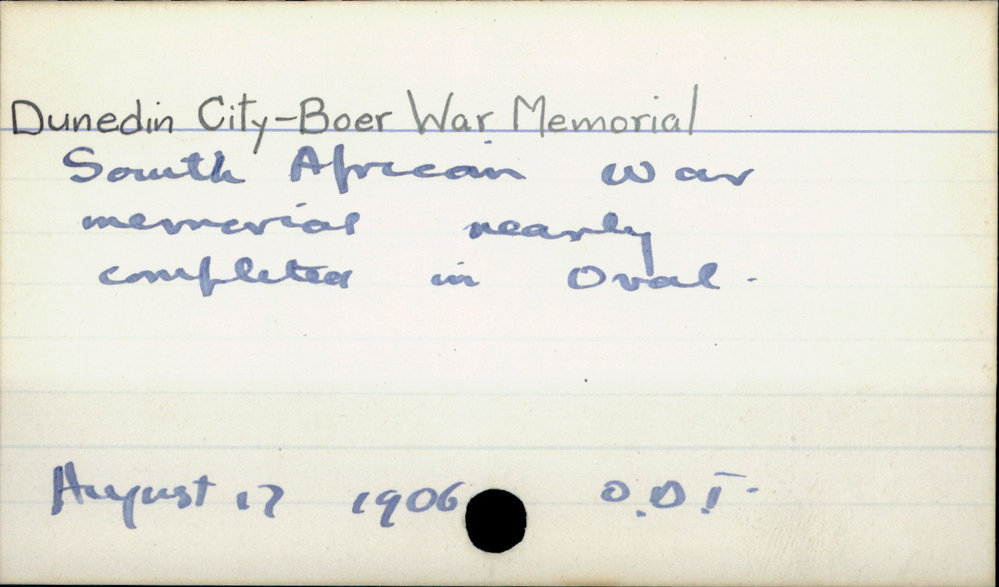 Dunedin City-Boer War Memorial
South African War
memorial nearly
completed in Oval.
August 17 1906 O.D.T.